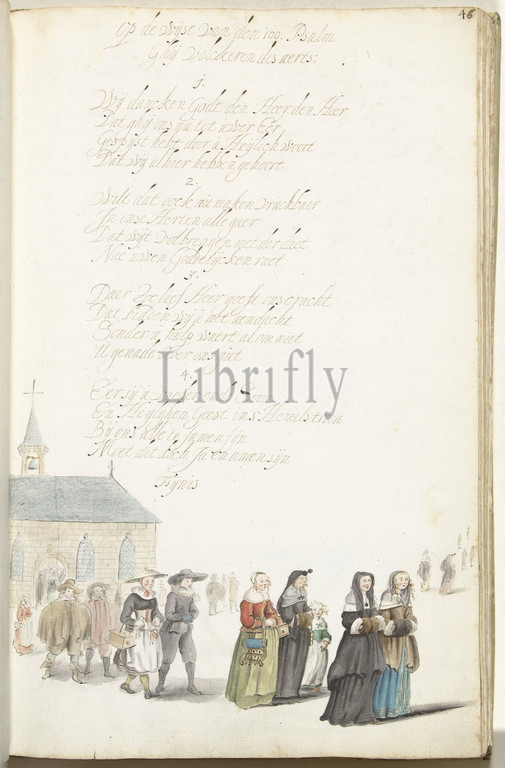 46
Op de wijse van den 100. Psalm
Ghij volckeren des aerts:
1.
Wij dancken Godt den Heer den Heer
Dat ghij ons tot uwer Eer
Gespijst hebt door u Heylich woort
Dat wij alhier hebben gehoort
2.
Wilt dat oock nu maken vruchbaer
In onse Herten alle gaer
Dat wijt volbrengen met der daet
Nae uwen Goddelycken raet
3.
Daer toe lief Heer geeft ons cracht
Dat bidden wij u met aendacht
Sonder u hulp
U genade over ons niet
4.
Eer sij
En Heylighen Geest in s Hemels troon
Bij ons alle te samen sijn
Moet dit doch Ja en amen sijn
Fynis
Librifly